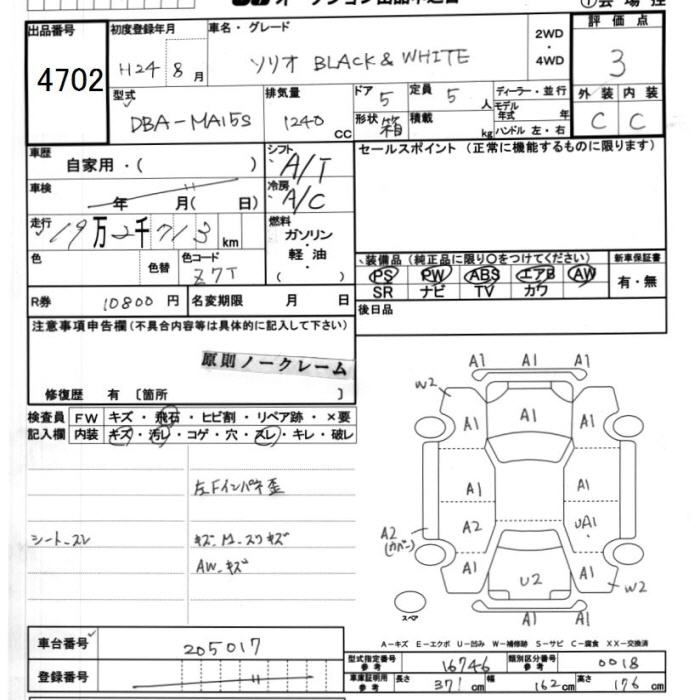 出品番号
4702
初度登録年月
H24 8月
車名・グレード
ソリオ BLACK & WHITE
2WD
・
4WD
評価点
3
型式
DBA-MA15S
排気量
1240 cc
ドア 5
定員 5 人
形状 箱
積載 kg
ディーラー・並行
モデル年式 年
ハンドル 左・右
外装 内装
C C
車歴
自家用・( )
シフト
A/T
セールスポイント (正常に機能するものに限ります)
車検
年 月( 日)
冷房
A/C
走行
19万2千713 km
燃料
ガソリン
・
軽油
( )
色
色替
色コード
Z7T
装備品 (純正品に限り○をつけてください)
PS PW ABS エアB AW
SR ナビ TV カワ
新車保証書
有・無
R券
10800円
名変期限 月 日
後日品
注意事項申告欄(不具合内容等は具体的に記入して下さい)
原則ノークレーム
修復歴 有 〔箇所 〕
検査員
記入欄
FW キズ・飛石・ヒビ割・リペア跡・×要
内装 キズ・汚レ・コゲ・穴・スレ・キレ・破レ
左Fインパネ歪
シート-スレ
キズ.M-スリキズ
AW-キズ
A1 A1 A1
W2
A1 A1 A1
A1 A1
A2
(カバー)
A2 UA1
A1 U2 A1
W2
スペア
A1 A1 A1
A-キズ E-エクボ U-凹み W-補修跡 S-サビ C-腐食 XX-交換済
車台番号
205017
登録番号
型式指定番号
参考
16746
類別区分番号
参考
0018
車庫証明用
参考
長さ 371cm
幅 162cm
高さ 176cm